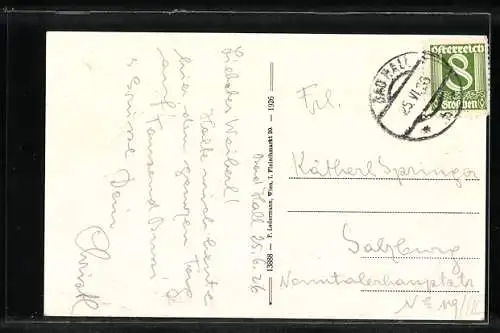 Bad Hall 25.6.26
Liebster Weiberl!
Halte mich heute
hier den ganzen Tag
auf! Tausend Bussi
u Grüsse Dein
Christl
13888 – P. Ledermann, Wien, I. Fleischmarkt 20. – 1926
BAD HALL
25.VI.26
österreich
8
Groschen
Frl.
Kätherl Springer
Salzburg
Nonntalerhauptstr